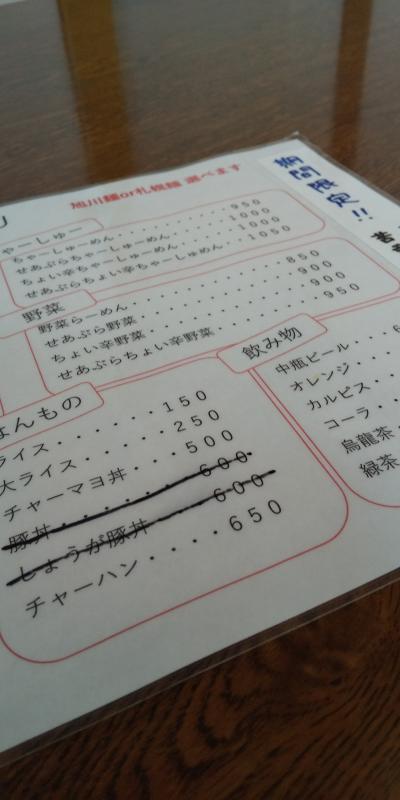 旭川麺or札幌麺 選べます
期間限定!!
ゃーしゅー
ちゃーしゅーめん・・・・・・・・・・950
せあぶらちゃーしゅーめん・・・・・・1000
ちょい辛ちゃーしゅーめん・・・・・・1000
せあぶらちょい辛ちゃーしゅーめん・・・1050
野菜
野菜らーめん・・・・・・・・・・・・850
せあぶら野菜・・・・・・・・・・・・900
ちょい辛野菜・・・・・・・・・・・・900
せあぶらちょい辛野菜・・・・・・・・950
はんもの
ライス・・・・・・150
大ライス・・・・・250
チャーマヨ丼・・・・500
豚丼・・・・・・・600
しょうが豚丼・・・・600
チャーハン・・・・650
飲み物
中瓶ビール・・・6
オレンジ・・・
カルピス・・・
コーラ・・・
烏龍茶・・
緑茶・・